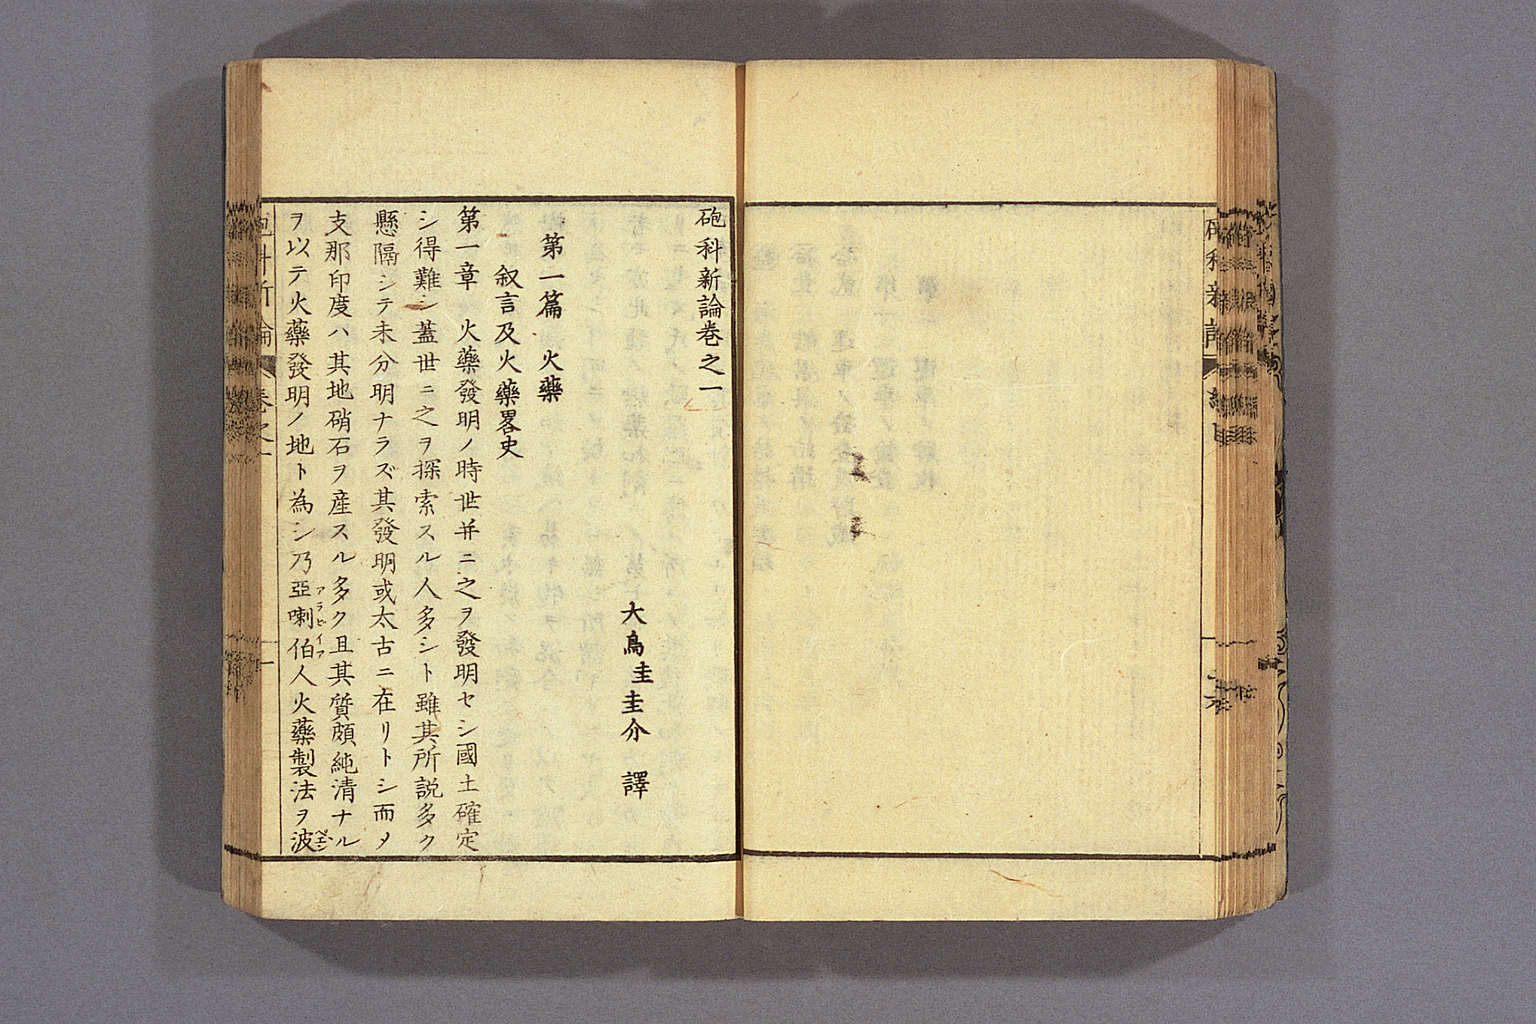 砲科新論巻之一
大鳥圭圭介 譯
第一篇 火藥
叙言及火藥畧史
第一章 火藥發明ノ時世并ニ之ヲ發明セシ國土確定
シ得難シ蓋世ニ之ヲ探索スル人多シト雖其所説多ク
懸隔シテ未分明ナラズ其發明或太古ニ在リトシ而メ
支那印度ハ其地硝石ヲ産スル多ク且其質頗純清ナル
ヲ以テ火藥發明ノ地ト為シ乃亞喇伯人火藥製法ヲ波
アラビイア
砲科新論 巻之一
一